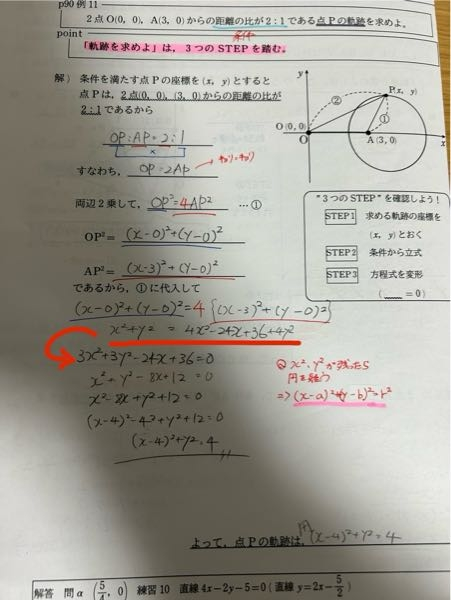 p90 例11
2点O(0, 0), A(3, 0)からの距離の比が2:1である点Pの軌跡を求めよ。
条件
point
「軌跡を求めよ」は, 3つのSTEPを踏む。
解) 条件を満たす点Pの座標を(x, y)とすると
点Pは, 2点(0, 0), (3, 0)からの距離の比が
2:1であるから
OP:AP=2:1
すなわち, OP=2AP
両辺2乗して, OP²=4AP² …①
OP²= (x-0)²+(y-0)²
AP²= (x-3)²+(y-0)²
であるから, ①に代入して
(x-0)²+(y-0)²=4{(x-3)²+(y-0)²}
x²+y² = 4x²-24x+36+4y²
3x²+3y²-24x+36=0
x²+y²-8x+12=0
x²-8x+y²+12=0
(x-4)²-4²+y²+12=0
(x-4)²+y²=4
y
②
P(x, y)
①
O(0, 0)
O
A(3, 0)
x
"3つのSTEP"を確認しよう!
STEP1 求める軌跡の座標を
(x, y)とおく
STEP2 条件から立式
STEP3 方程式を変形
( =0)
x², y²が残ったら
円を疑う
⇒(x-a)²+(y-b)²=r²
よって, 点Pの軌跡は, 円(x-4)²+y²=4
解答 問α (5/4, 0) 練習10 直線4x-2y-5=0(直線 y=2x-5/2)